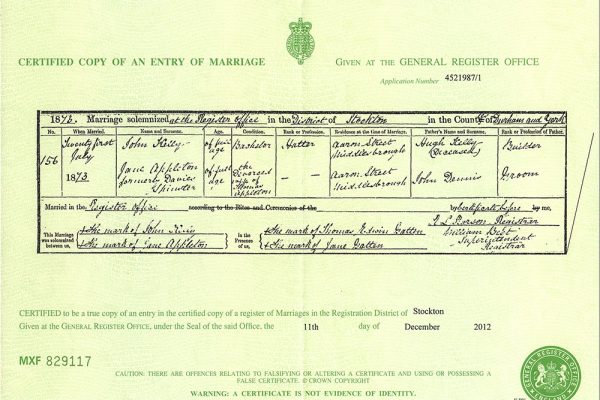 CERTIFIED COPY OF AN ENTRY OF MARRIAGE
GIVEN AT THE GENERAL REGISTER OFFICE
Application Number 4521987/1
1873. Marriage solemnized at the Register Office in the District of Stockton in the County of Durham and York
No. When Married. Name and Surname. Age. Condition. Rank or Profession. Residence at the time of Marriage. Father's Name and Surname. Rank or Profession of Father.
156 Twenty first July 1873. John Kelly of full age Bachelor Hatter Aaron Street Middlesbrough Hugh Kelly (Deceased) Builder
Jane Appleton formerly Spinster of full age the Divorced wife of Thomas Appleton — — Aaron Street Middlesbrough John Dennis Groom
Married in the Register Office according to the Rites and Ceremonies of the by certificate before me,
This Marriage was solemnized between us, X the mark of John X the mark of Jane Appleton in the Presence of us, X the mark of Thomas Edwin Gatten X the mark of Jane Gatten Registrar William Superintendent Registrar
CERTIFIED to be a true copy of an entry in the certified copy of a register of Marriages in the Registration District of Stockton
Given at the GENERAL REGISTER OFFICE, under the Seal of the said Office, the 11th day of December 2012
MXF 829117
CAUTION: THERE ARE OFFENCES RELATING TO FALSIFYING OR ALTERING A CERTIFICATE AND USING OR POSSESSING A
FALSE CERTIFICATE. © CROWN COPYRIGHT
WARNING: A CERTIFICATE IS NOT EVIDENCE OF IDENTITY.
GENERAL REGISTER OFFICE
ENGLAND